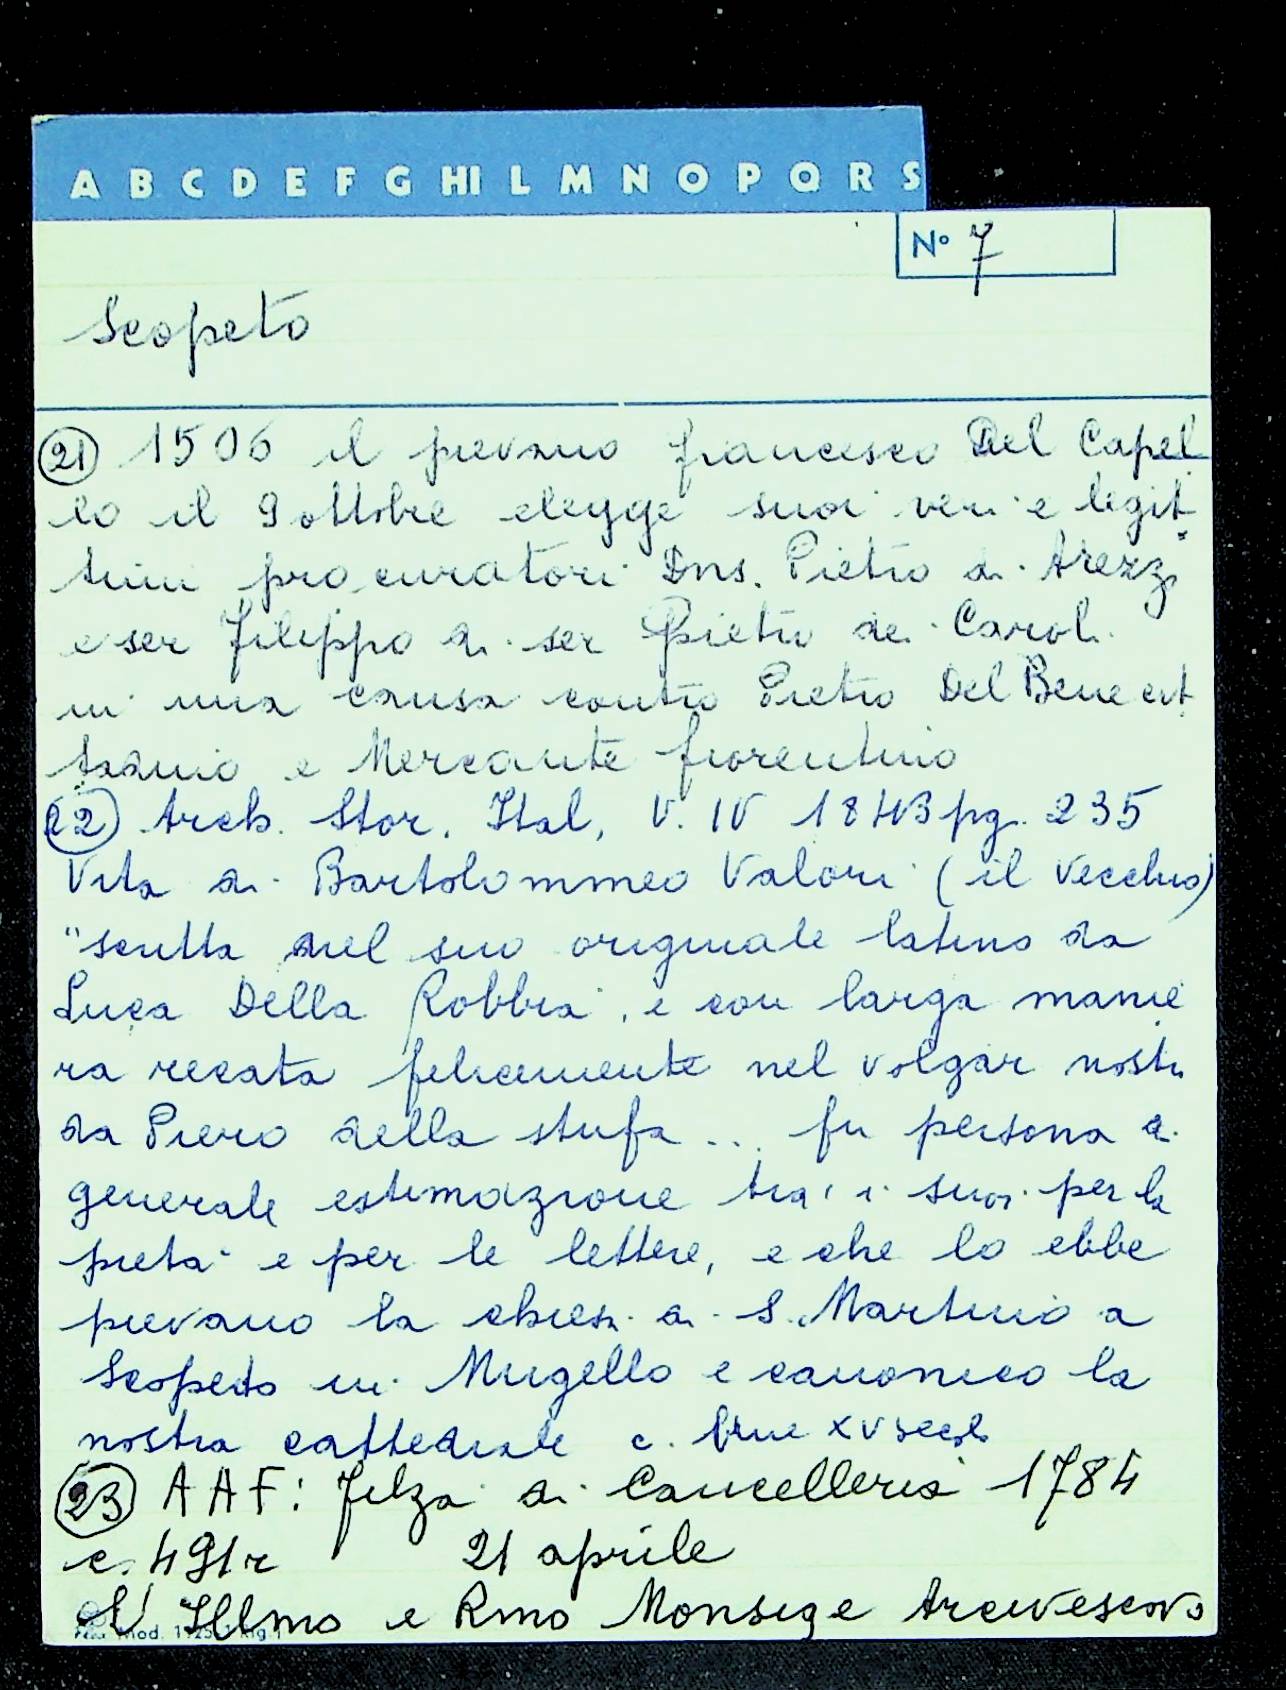 A B C D E F G HI L M N O P Q R S
N° 7
Scopeto
(21) 1506 il pievano Francesco Del Capel
lo il 9 ottobre elegge suoi veri e legit
timi procuratori Dns. Pietro di Arezzo
e ser Filippo di ser Pietro de Caroli
in una causa contro Pietro Del Bene cit
tadino e Mercante fiorentino
(22) Arch. Stor. Ital, V. IV 1843 pg. 235
Vita di Bartolommeo Valori (il Vecchio)
"scritta nel suo originale latino da
Luca Della Robbia, e con larga manie
ra recata felicemente nel volgar nostro
da Piero della stufa ... fu persona di
generale estimazione tra i suoi per la
pietà e per le lettere, e che lo ebbe
pievano la chiesa di S. Martino a
Scopeto in Mugello e canonico la
nostra cattedrale c. fine XV secolo
(23) AAF: Filza di Cancelleria 1784
c. 491r 21 aprile
Illmo e Rmo Monsig e Arcivescovo
Mod.